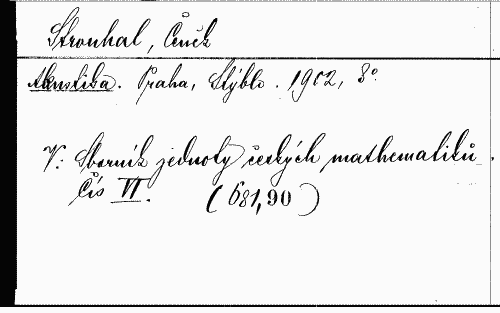 Strouhal, Čeněk
Akustika. Praha, Stýblo. 1902, 8°.
V: Sborník jednoty českých mathematiků.
Čís VI. (681,90)